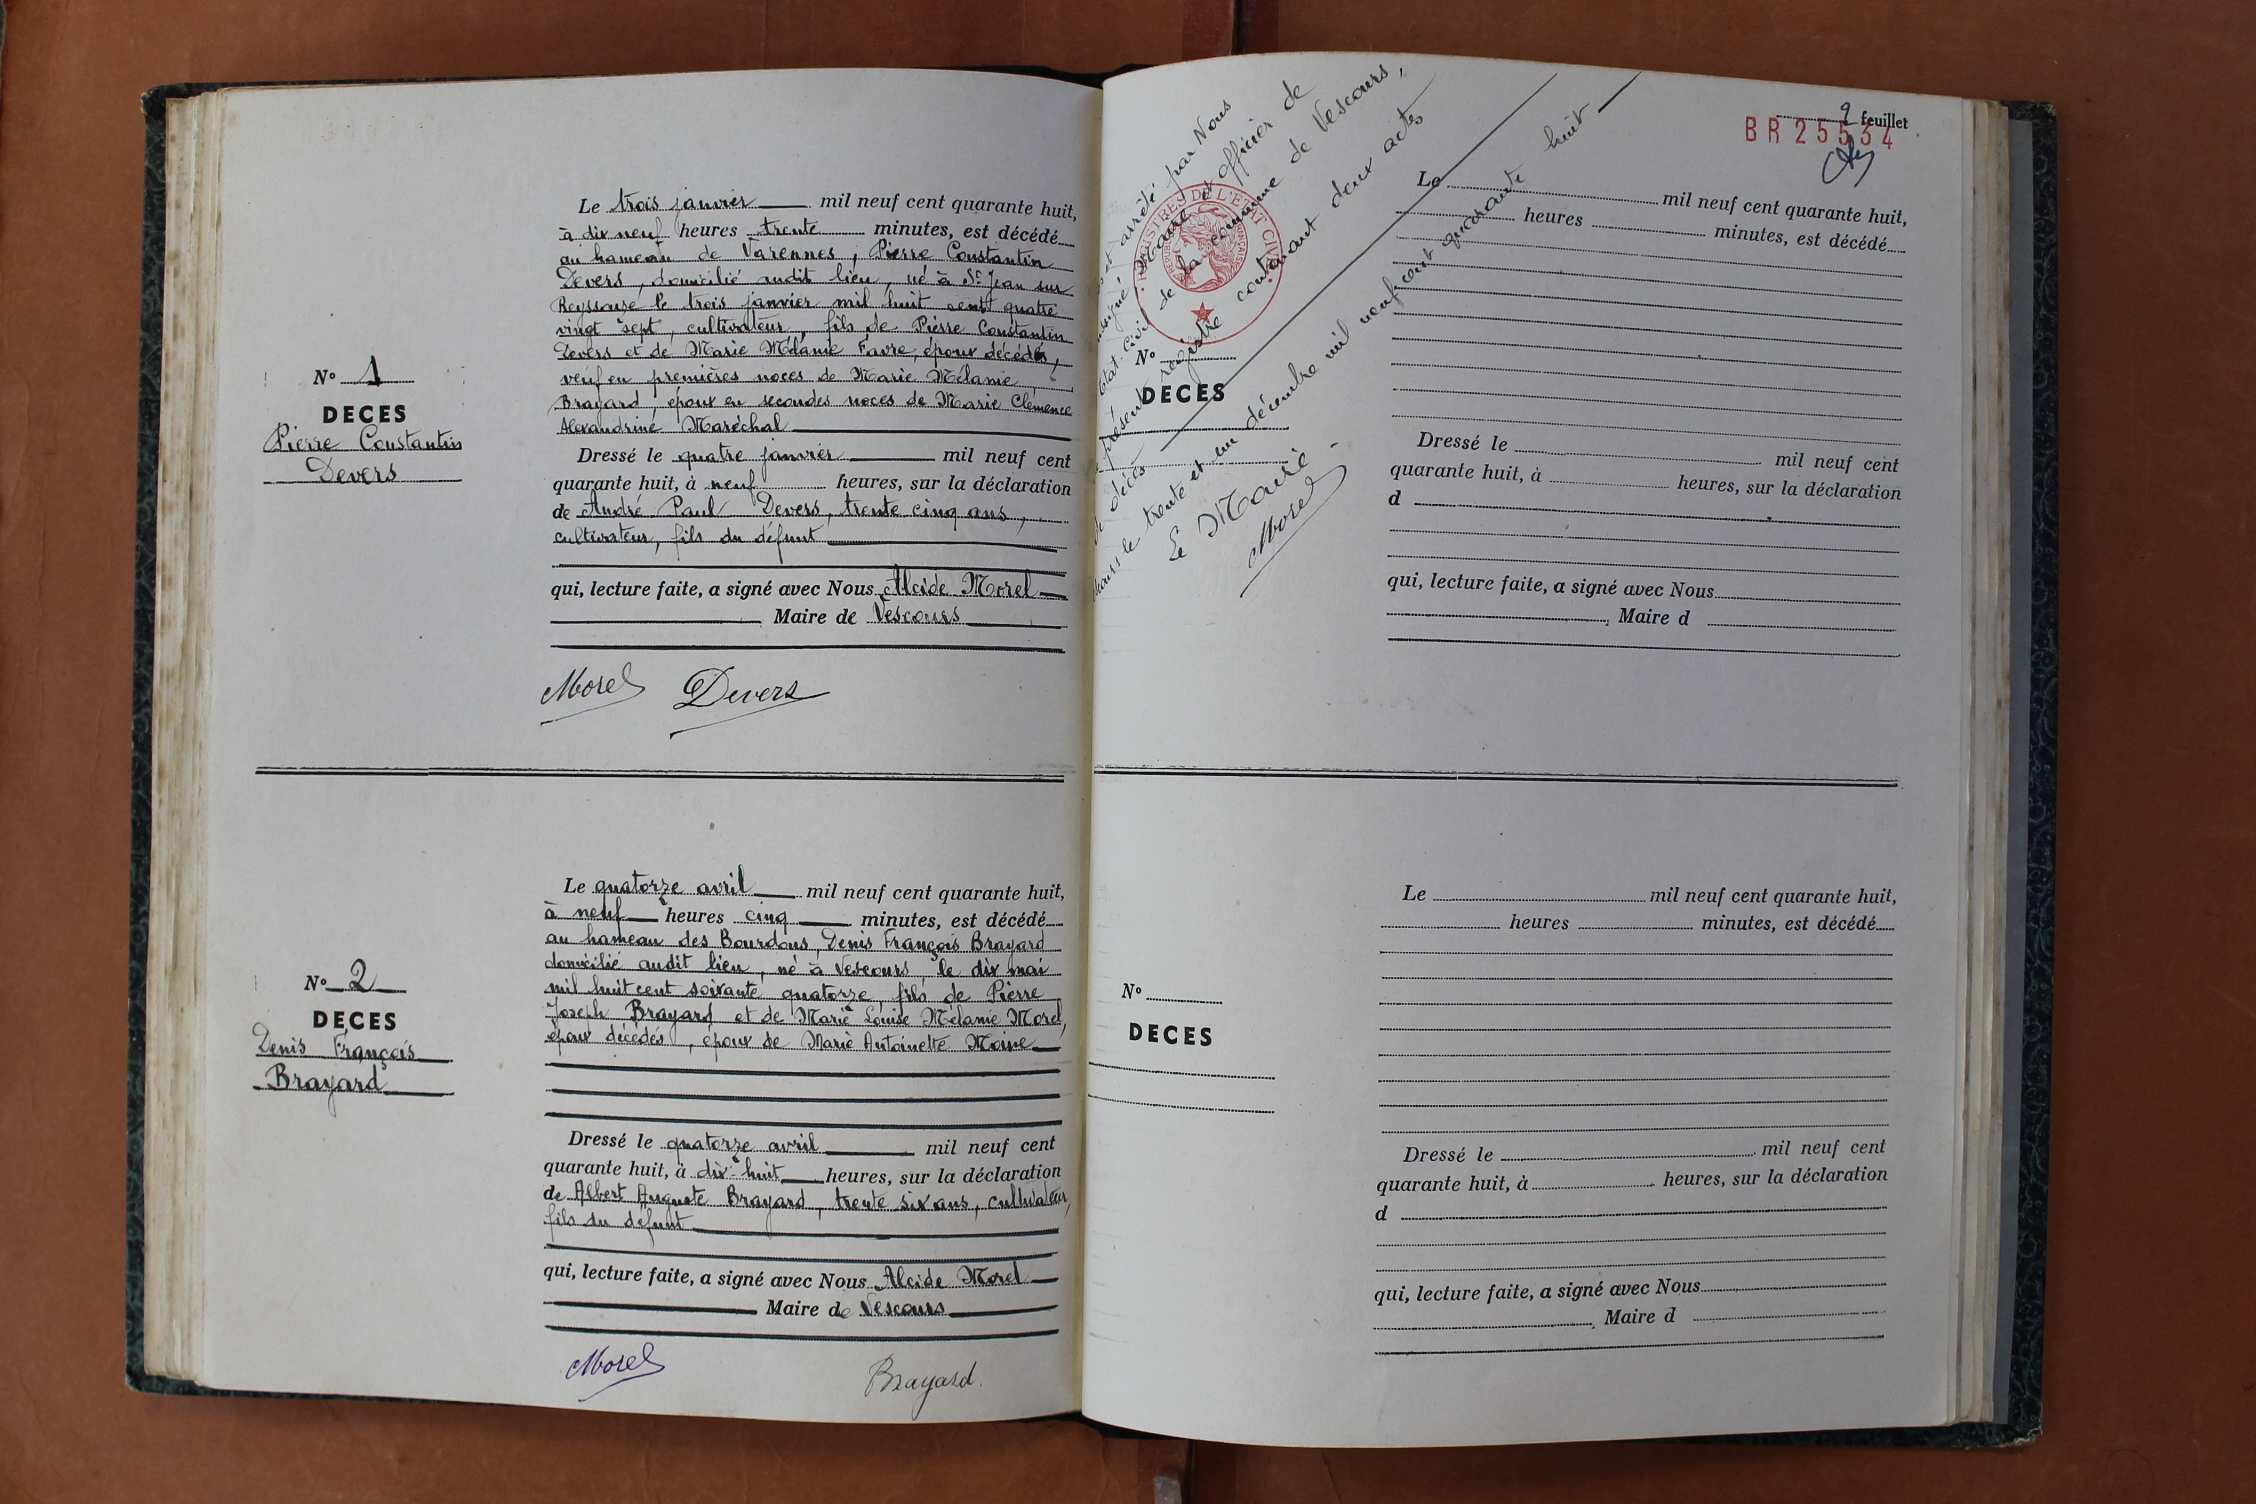 N° 1
DECES
Pierre Constantin
Devers
Le trois janvier mil neuf cent quarante huit,
à dix neuf heures trente minutes, est décédé
au hameau de Varennes, Pierre Constantin
Devers, domicilié audit lieu, né à St Jean sur
Reyssouze le trois janvier mil huit cent quatre
vingt sept, cultivateur, fils de Pierre Constantin
Devers et de Marie Mélanie Favre, époux décédés,
veuf en premières noces de Marie Mélanie
Brayard, époux en secondes noces de Marie Clémence
Alexandrine Maréchal
Dressé le quatre janvier mil neuf cent
quarante huit, à neuf heures, sur la déclaration
de André Paul Devers, trente cinq ans,
cultivateur, fils du défunt
qui, lecture faite, a signé avec Nous Alcide Morel
Maire de Vescours
Morel Devers
N° 2
DECES
Denis François
Brayard
Le quatorze avril mil neuf cent quarante huit,
à neuf heures cinq minutes, est décédé
au hameau des Bourdons, Denis François Brayard
domicilié audit lieu, né à Vescours, le dix mai
mil huit cent soixante quatorze, fils de Pierre
Joseph Brayard et de Marie Louise Mélanie Morel,
époux décédés, époux de Marie Antoinette Moine
Dressé le quatorze avril mil neuf cent
quarante huit, à dix-huit heures, sur la déclaration
de Albert Auguste Brayard, trente six ans, cultivateur,
fils du défunt
qui, lecture faite, a signé avec Nous Alcide Morel
Maire de Vescours
Morel Brayard.
2 feuillet
BR 25534
et arrêté par Nous
Maire et officier de
Etat Civil de la commune de Vescours,
présent registre contenant deux actes
de décès
le trente et un décembre mil neuf cent quarante huit
Le Maire
Morel
REGISTRES DE L'ETAT CIVIL
N°
DECES
Le mil neuf cent quarante huit,
heures minutes, est décédé
Dressé le mil neuf cent
quarante huit, à heures, sur la déclaration
d
qui, lecture faite, a signé avec Nous
, Maire d
N°
DECES
Le mil neuf cent quarante huit,
heures minutes, est décédé
Dressé le mil neuf cent
quarante huit, à heures, sur la déclaration
d
qui, lecture faite, a signé avec Nous
, Maire d